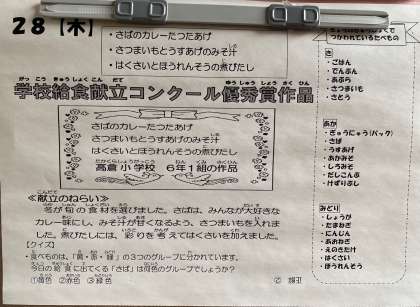 28【木】
・さばのカレーたつたあげ
・さつまいもとうすあげのみそ汁
・はくさいとほうれんそうの煮びたし
学校給食献立コンクール優秀賞作品
さばのカレーたつたあげ
さつまいもとうすあげのみそ汁
はくさいとほうれんそうの煮びたし
高倉小学校 6年1組の作品
≪献立のねらい≫
名が旬の食材を選びました。さばは、みんなが大好きな
カレー味にし、みそ汁が甘くなるよう、さつまいもを入れま
した。煮びたしには、彩りを考えてはくさいを加えました。
【クイズ】
・食べものは、「黄・赤・緑」の3つのグループに分かれています。
今日の給食に出てくる「さば」は何色のグループでしょうか?
①黄色 ②赤色 ③緑色
つかわれているたべもの
き
・ごはん
・でんぷん
・あぶら
・さつまいも
・さとう
あか
・ぎゅうにゅう(パック)
・さば
・うすあげ
・あかみそ
・しろみそ
・だしこんぶ
・けずりぶし
みどり
・しょうが
・たまねぎ
・にんじん
・あおねぎ
・えのきたけ
・はくさい
・ほうれんそう